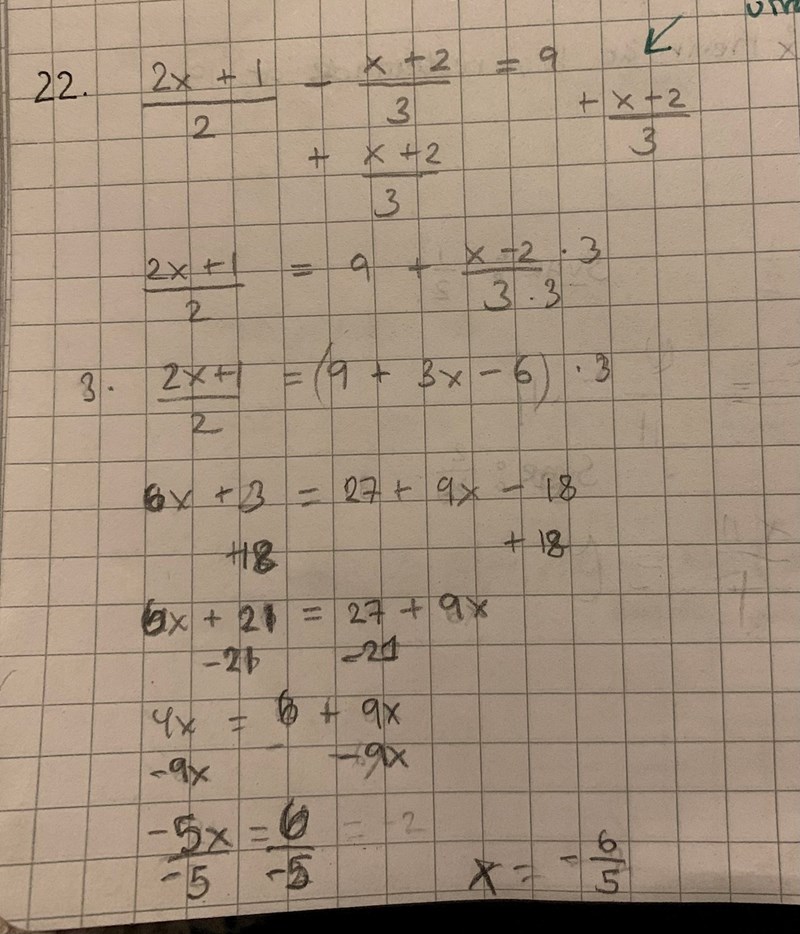 22. (2x + 1)/2 - (x + 2)/3 = 9 + (x - 2)/3
+ (x + 2)/3
(2x + 1)/2 = 9 + (x - 2)/3 · 3/3
3. (2x + 1)/2 = (9 + 3x - 6) · 3
6x + 3 = 27 + 9x - 18
+18 + 18
6x + 21 = 27 + 9x
-21 -21
4x = 6 + 9x
-9x - -9x
-5x/-5 = 6/-5 = -2
x = - 6/5